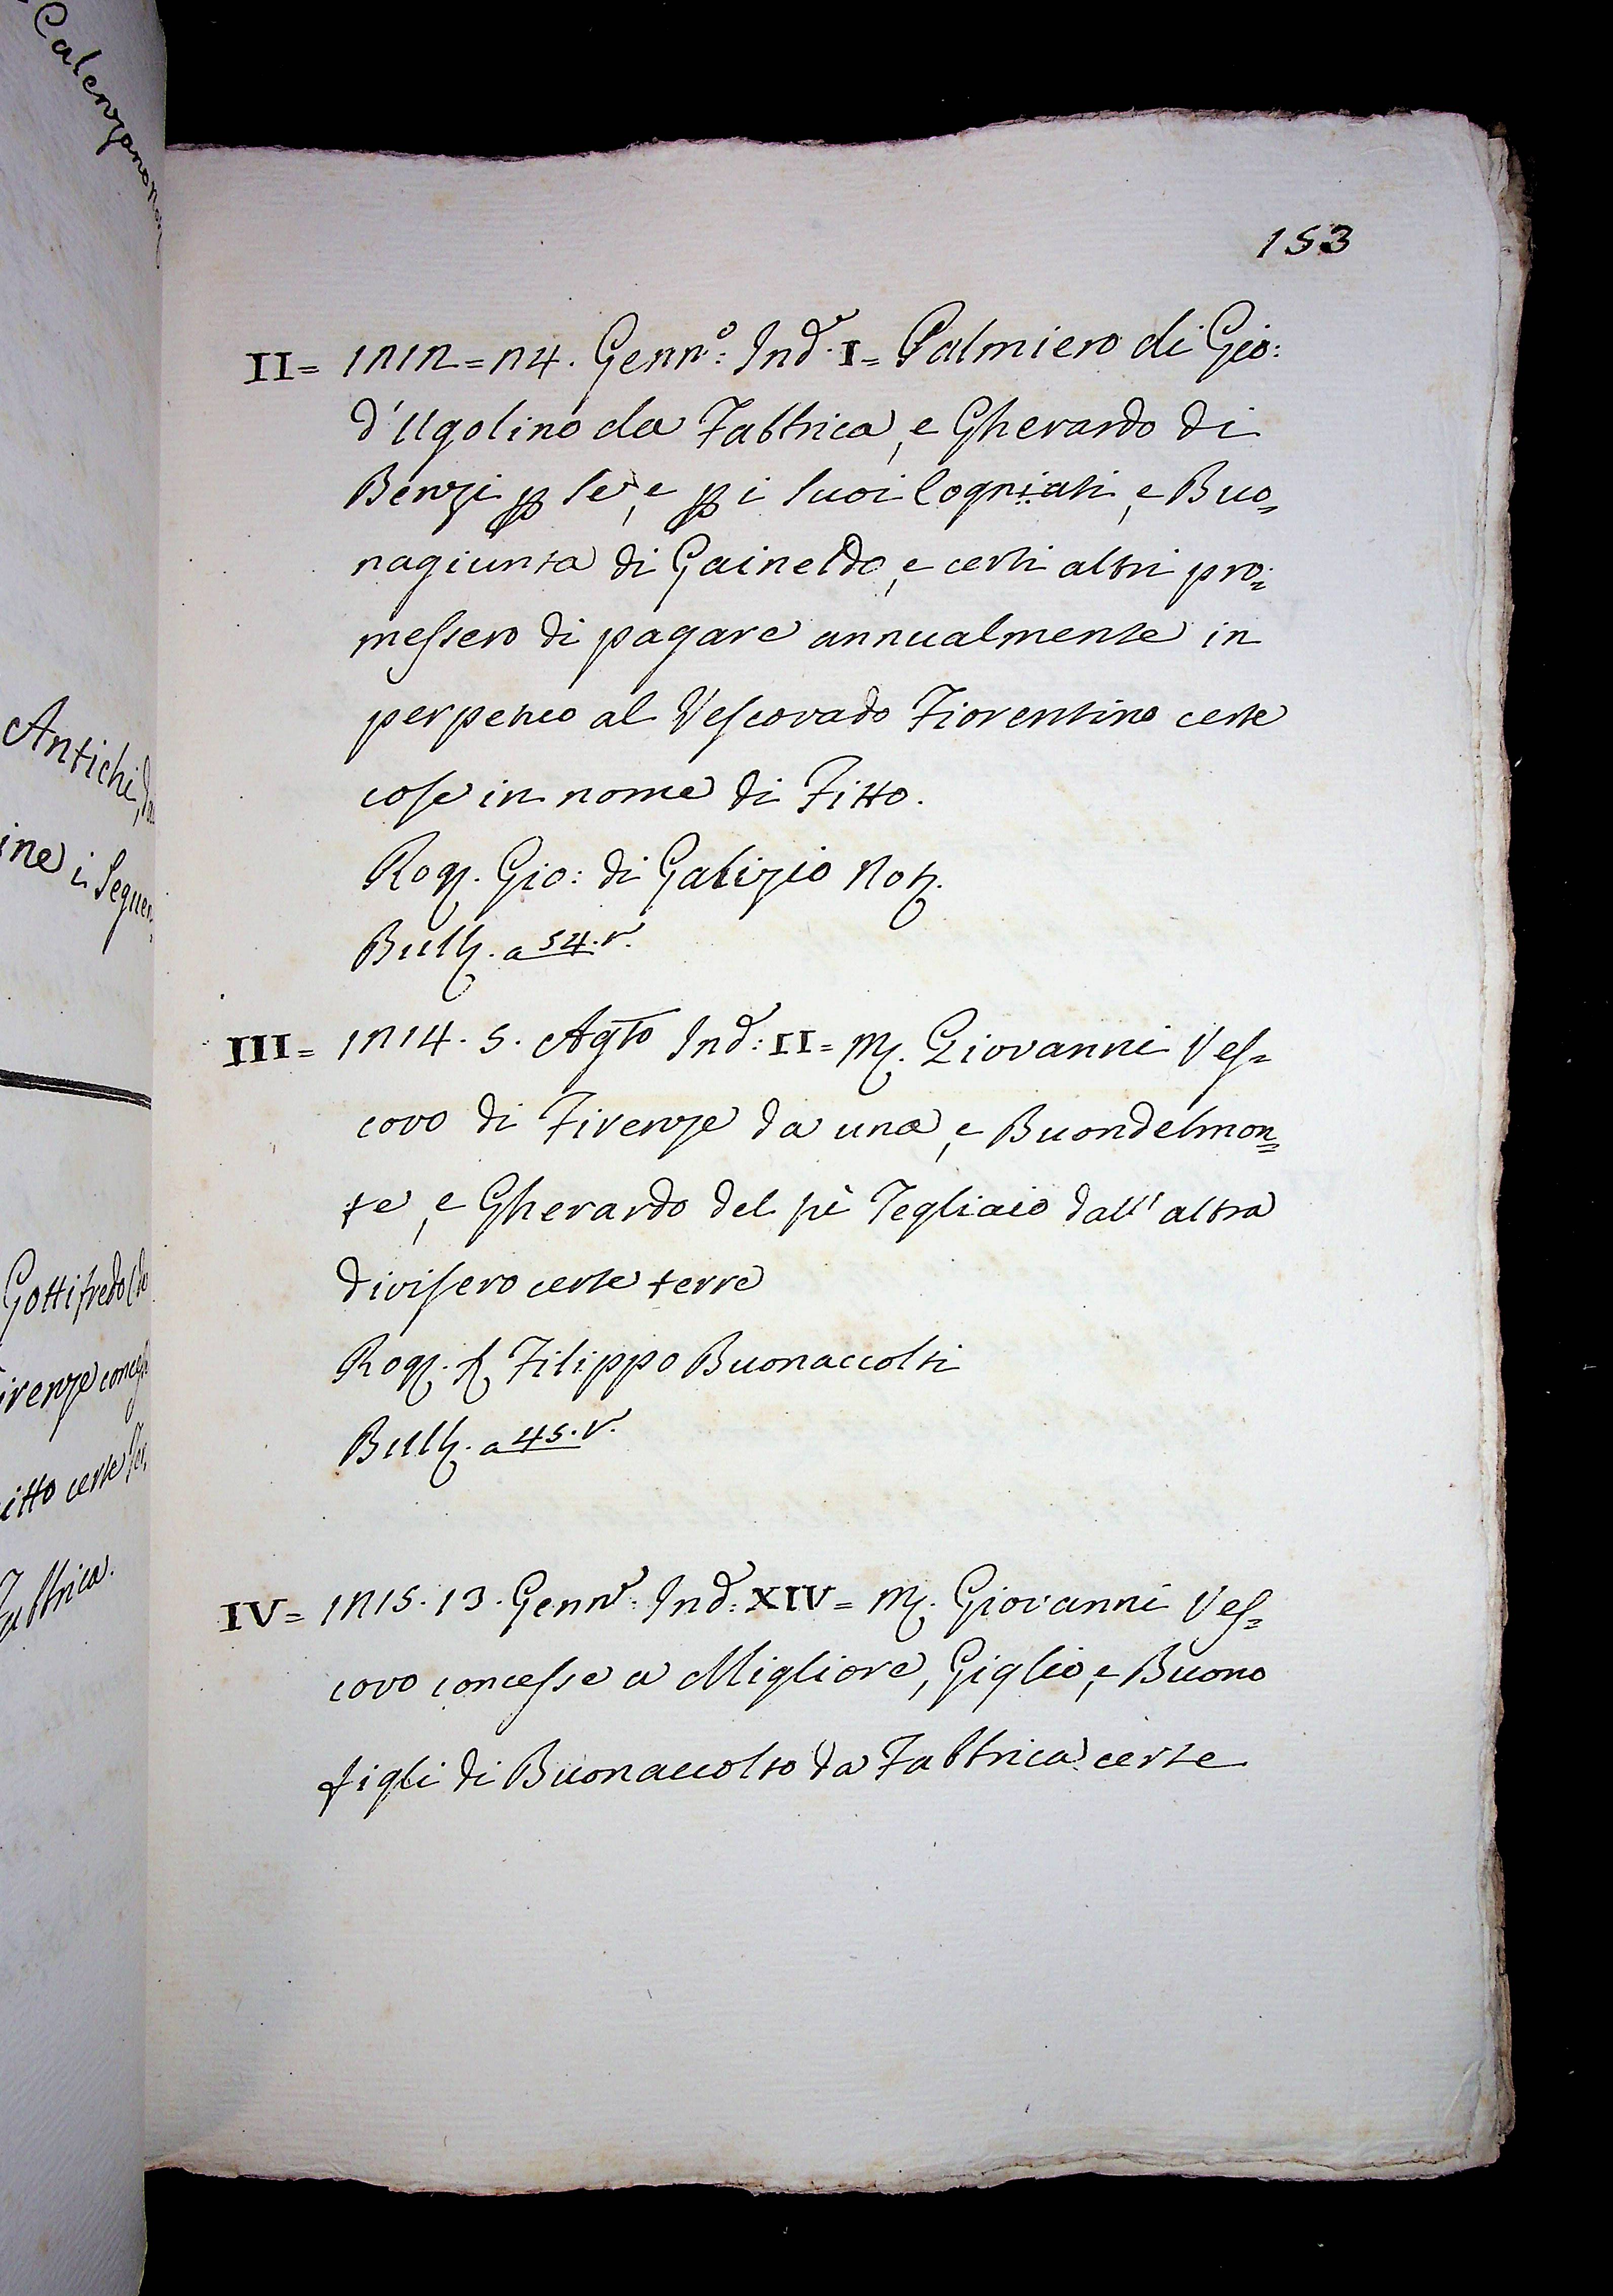 Calenzano
Antichi,
ine i Seguen
Gottifredo
irenze conces
itto certe
Fabbrica.
153
II = 1212 = 24. Genn.º: Ind.e I = Palmiero di Gio:
d'Ugolino da Fabbrica, e Gherardo di
Benzi p se, e p i suoi Cogniati, e Buo=
nagiunta di Gaineldo, e certi altri pro=
messero di pagare annualmente in
perpetuo al Vescovado Fiorentino certe
cose in nome di Fitto.
Rog. Gio: di Galizio Not.
Bull. a 54. r.
III = 1214. 5. Agto Ind.e: II = M. Giovanni Ves=
covo di Firenze da una, e Buondelmon=
te, e Gherardo del più Tegliaio dall' altra
divisero certe terre
Rog. S. Filippo Buonaccolti
Bull. a 45. r.
IV = 1215. 13. Genn.e: Ind.e: XIV = M. Giovanni Ves=
covo concesse a Migliore, Giglio, e Buono
figli di Buonaccolto da Fabbrica certe